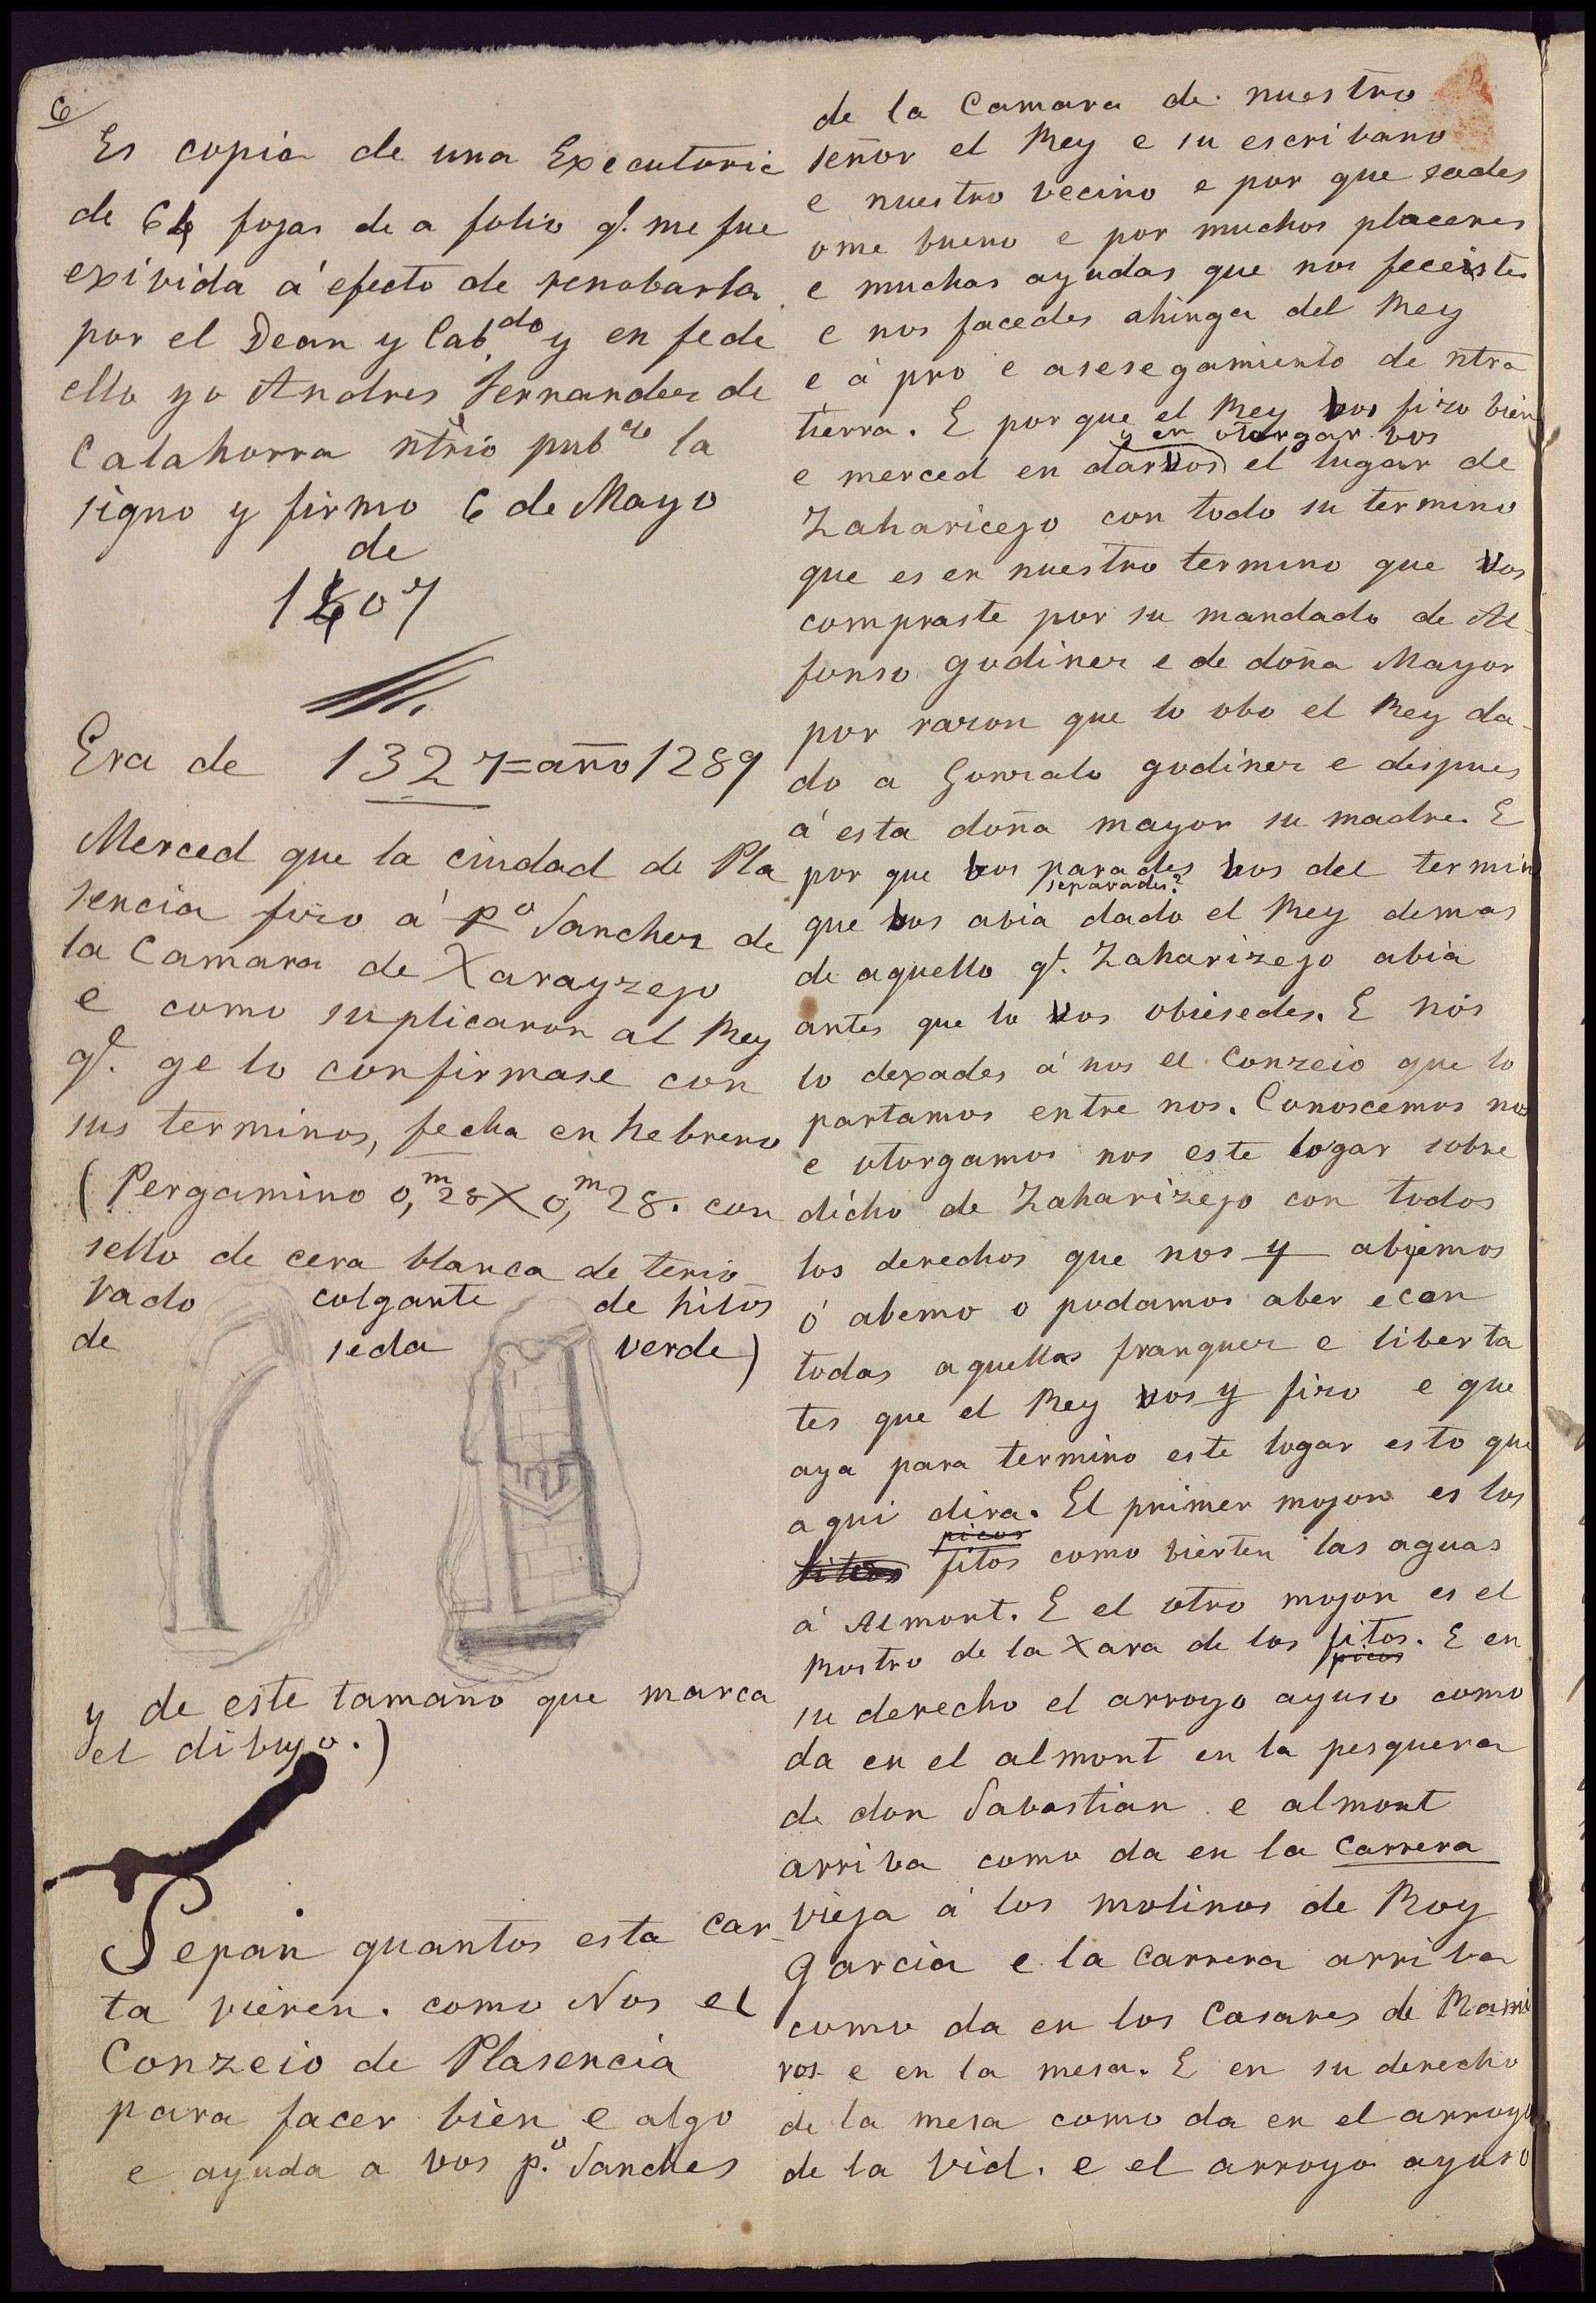 6
Es copia de una Executoria
de 64 fojas de a folio q.e me fue
exivida á efecto de renobarla
por el Dean y Cab.do y en fe de
ello yo Andres Fernandez de
Calahorra ntrio pub.co la
signo y firmo 6 de Mayo
de
1607
Era de 1327=año 1289
Merced que la ciudad de Pla
sencia fizo á po Sanchez de
la Camara de Xarayzejo
e como suplicaron al Rey
q.e ge lo confirmase con
sus terminos, fecha en hebrero
(Pergamino 0,m28 X 0,m28. con
sello de cera blanca de terio
rado colgante de hilos
de seda verde)
y de este tamaño que marca
el dibujo.)
Sepan quantos esta car-
ta vieren. como Nos el
Conzeio de Plasencia
para facer bien e algo
e ayuda a vos p.o Sanches
de la Camara de nuestro
señor el Rey e su escribano
e nuestro vecino e por que sodes
ome bueno e por muchos placeres
e muchas ayudas que nos feceistes
e nos facedes ahinga del Rey
e á pro e asesegamiento de ntra
tierra. E por que el Rey vos fizo bien
y en otorgar vos
e merced en darvos el lugar de
Zaharicejo con todo su termino
que es en nuestro termino que vos
compraste por su mandado de Al-
fonso godinez e de doña Mayor
por razon que lo obo el Rey da-
do a Gonzalo godinez e despues
á esta doña mayor su madre. E
por que vos parades vos del termin
separades?
que vos abia dado el Rey demas
de aquello q.e Zaharizejo abia
antes que lo vos obiesedes. E nos
lo dexades á nos el Conzeio que lo
partamos entre nos. Conoscemos nos
e otorgamos nos este logar sobre
dicho de Zaharizejo con todos
los derechos que nos y abiemos
ó abemo o podamos aber e con
todas aquellas franquez e liberta
tes que el Rey vos y fizo e que
aya para termino este logar esto que
aqui dira. El primer mojon es los
picos
fitos como vierten las aguas
á Almont. E el otro mojon es el
Rostro de la Xara de los fitos. E en
picos
su derecho el arroyo ayuso como
da en el almont en la pesquera
de don Sabastian e almont
arriba como da en la Carrera
vieja á los molinos de Roy
Garcia e la Carrera arriba
como da en los Casares de Rami
ros e en la mesa. E en su derecho
de la mesa como da en el arroyo
de la vid. e el arroyo ayuso